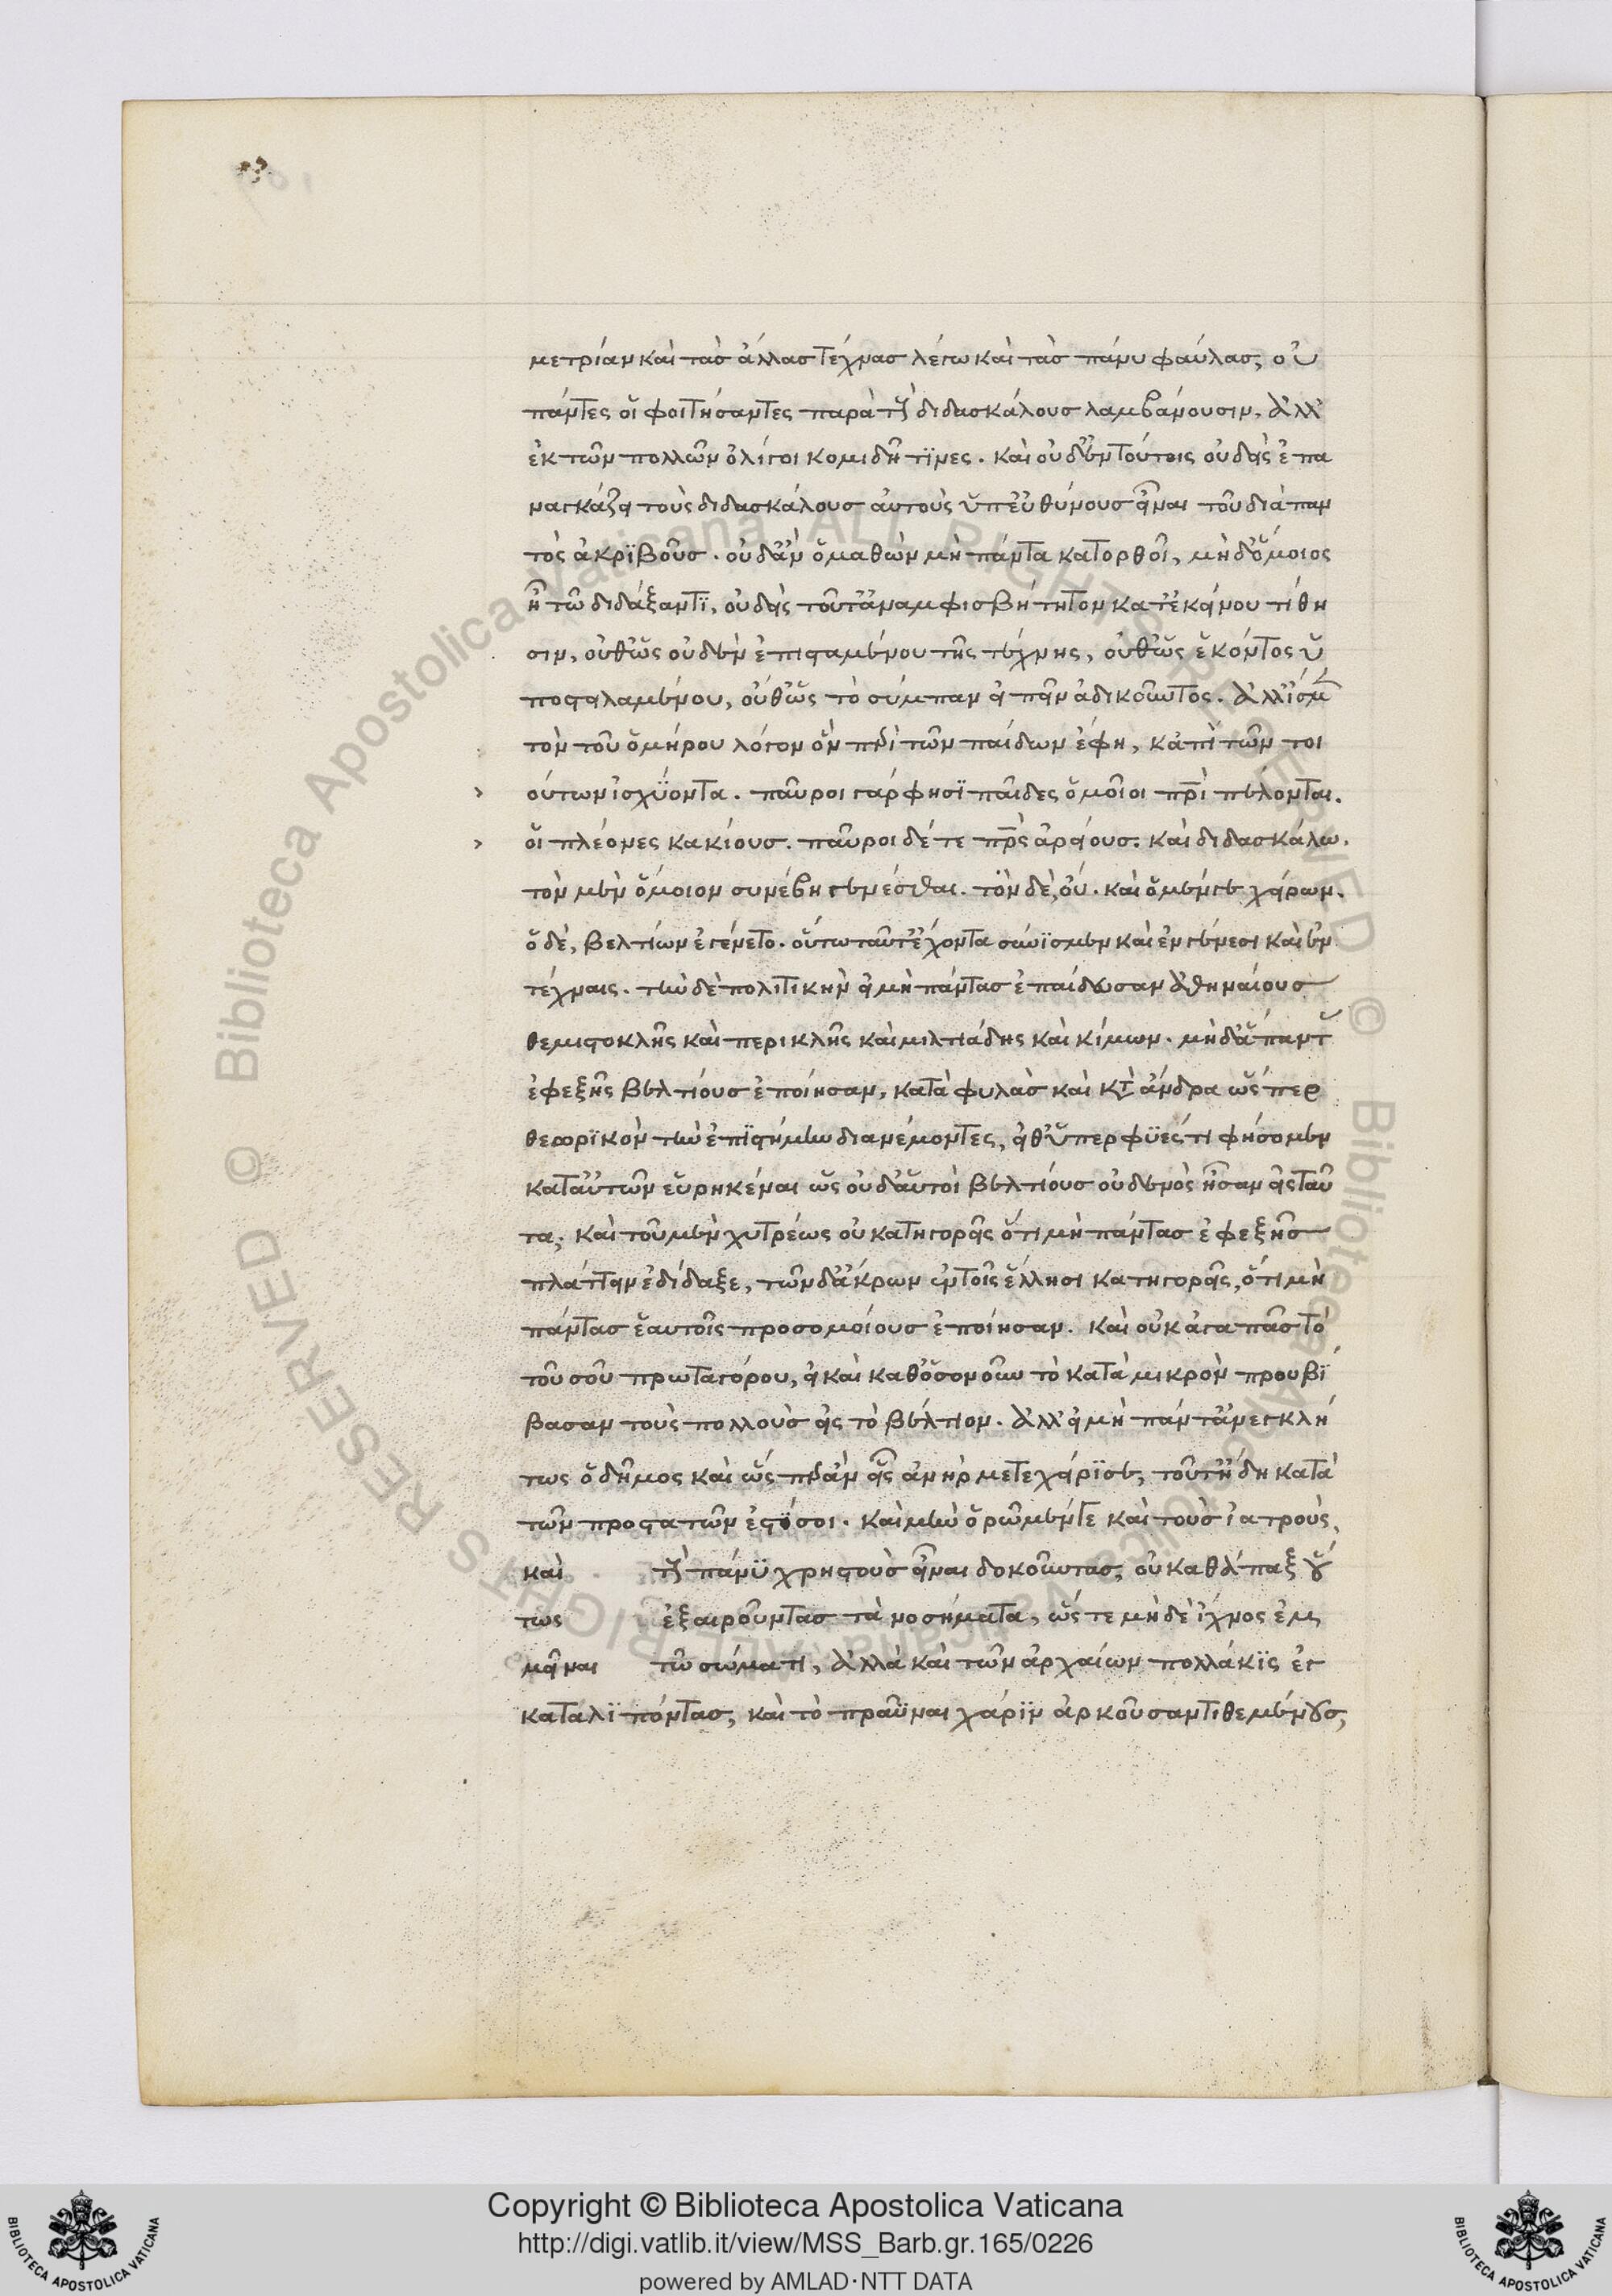 μετρίαν καὶ τὰσ ἄλλασ τέχνασ λέγω καὶ τὰσ πάνυ φαύλασ, οὐ
πάντες οἱ φοιτήσαντες παρὰ τοὺς διδασκάλουσ λαμβάνουσιν, ἀλλ'
ἐκ τῶν πολλῶν ὀλίγοι κομιδῆ τϊνες. καὶ οὐδὲν τούτοις οὐδεὶς ἐπα
ναγκάζει τοὺς διδασκάλουσ αὐτοὺς ὑπευθύνουσ εἶναι τοῦ διὰ παν
τὸς ἀκρϊβοῦσ. οὐδ' ἂν ὁ μαθὼν μὴ πάντα κατορθοῖ, μὴδ' ὅμοιος
ἦ τῶ διδάξαντϊ, οὐδεὶς τοῦτ' ἀναμφισβήτητον κατ' ἐκείνου τίθη
σιν, οὔθ' ὡς οὐδὲν ἐπισταμένου τῆς τέχνης, οὔθ' ὡς ἑκόντος ὑ
ποστειλαμένου, οὔθ' ὡς τὸ σύμπαν εἰπεῖν ἀδικοῦντος. ἀλλ' ἴσμεν
τὸν τοῦ ὁμήρου λόγον ὃν περὶ τῶν παίδων ἔφη, κἀπὶ τῶν τοι
ούτων ἰσχύοντα. παῦροι γάρ φησϊ παῖδες ὁμοῖοι πατρὶ πέλονται.
οἱ πλέονες κακίους. παῦροι δέ τε πατρὸς ἀρείουσ. καὶ διδασκάλω.
τὸν μὲν ὅμοιον συνέβη γενέσθαι. τὸν δὲ, οὔ. καὶ ὁ μέν γε χείρων.
ὁ δέ, βελτίων ἐγένετο. οὕτω ταῦτ' ἔχοντα σύνϊσμεν καὶ ἐν γένεσι καὶ ἐν
τέχναις. τὴν δὲ πολιτικὴν εἰ μὴ πάντασ ἐπαίδωσαν ἀθηναίουσ
θεμιστοκλῆς καὶ περικλῆς καὶ μιλτιάδης καὶ κίμων. μὴδ' ἅπαντας
ἐφεξῆς βελτίουσ ἐποίησαν, κατὰ φυλὰσ καὶ κατ' ἄνδρα ὥσπερ
θεωρϊκὸν τὴν ἐπϊστήμην διανέμοντες, εἶθ' ὑπερφυές τι φήσομεν
κατ' αὐτῶν εὑρηκέναι ὡς οὐδ' αὐτοὶ βελτίουσ οὐδενὸς ἦσαν εἰς ταῦ
τα; καὶ τοῦ μὲν χυτρέως οὐ κατηγορεῖς ὅτι μὴ πάντασ ἐφεξῆσ
πλάττειν ἐδίδαξε, τῶν δ' ἄκρων ἐν τοῖς ἕλλησι κατηγορεῖς, ὅτι μὴ
πάντασ ἑαυτοῖς προσομοίουσ ἐποίησαν. καὶ οὐκ ἀγαπᾶσ τὸ
τοῦ σοῦ πρωταγόρου, εἰ καὶ καθ' ὅσον οὖν τὸ κατὰ μικρὸν προυβί
βασαν τοὺς πολλοὺσ εἰς τὸ βέλτιον. ἀλλ' εἰ μὴ πάντ' ἀνεγκλή
τως ὁ δῆμος καὶ ὥσπερ ἂν εἷς ἀνὴρ μετεχείρϊσε, τοῦτ' ἤδη κατὰ
τῶν προστατῶν ἐστί σοι. καὶ μὴν ὁρῶμέν γε καὶ τοὺσ ἰατροὺς,
καὶ τοὺς πάνϋ χρηστοὺσ εἶναι δοκοῦντασ, οὐ καθάπαξ οὕ
τως ἐξαιροῦντασ τὰ νοσήματα, ὥστε μὴδὲ ἴχνος ἐμ
μεῖναι τῶ σώματι, ἀλλὰ καὶ τῶν ἀρχαίων πολλάκϊς ἐγ
καταλϊπόντασ, καὶ τὸ πραῧναι χάρϊν ἀρκοῦσαν τιθεμένους,